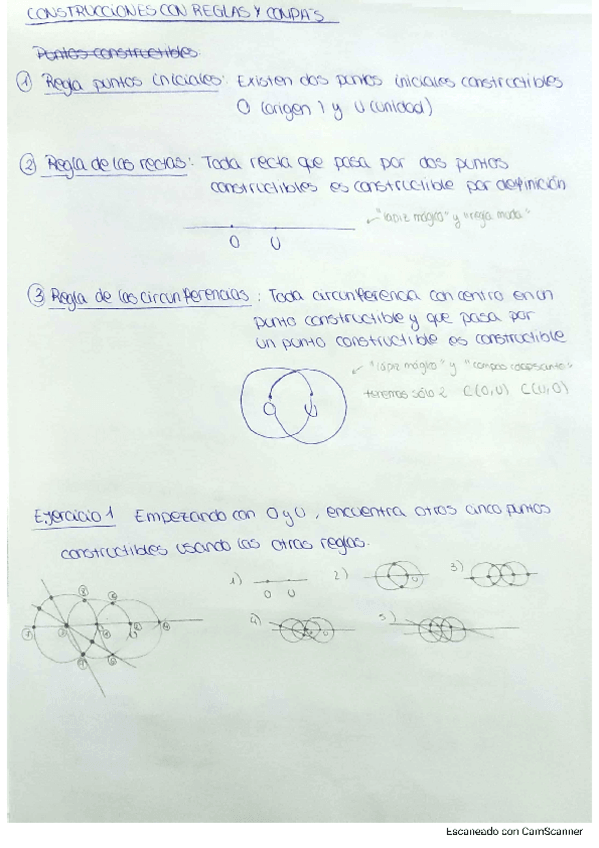 CONSTRUCCIONES CON REGLAS Y COMPÁS
Puntos constructibles
① Regla puntos iniciales: Existen dos puntos iniciales constructibles
O (origen) y U (unidad)
② Regla de las rectas: Toda recta que pasa por dos puntos
constructibles es constructible por definición
"lapiz mágico" y "regla muda"
O U
③ Regla de las circunferencias: Toda circunferencia con centro en un
punto constructible y que pasa por
un punto constructible es constructible
"lápiz mágico" y "compas colapsante"
O U
tenemos sólo 2 C(O,U) C(U,O)
Ejercicio 1 Empezando con O y U, encuentra otros cinco puntos
constructibles usando las otras reglas.
1) O U 2) U 3)
4) 5)
Escaneado con CamScanner